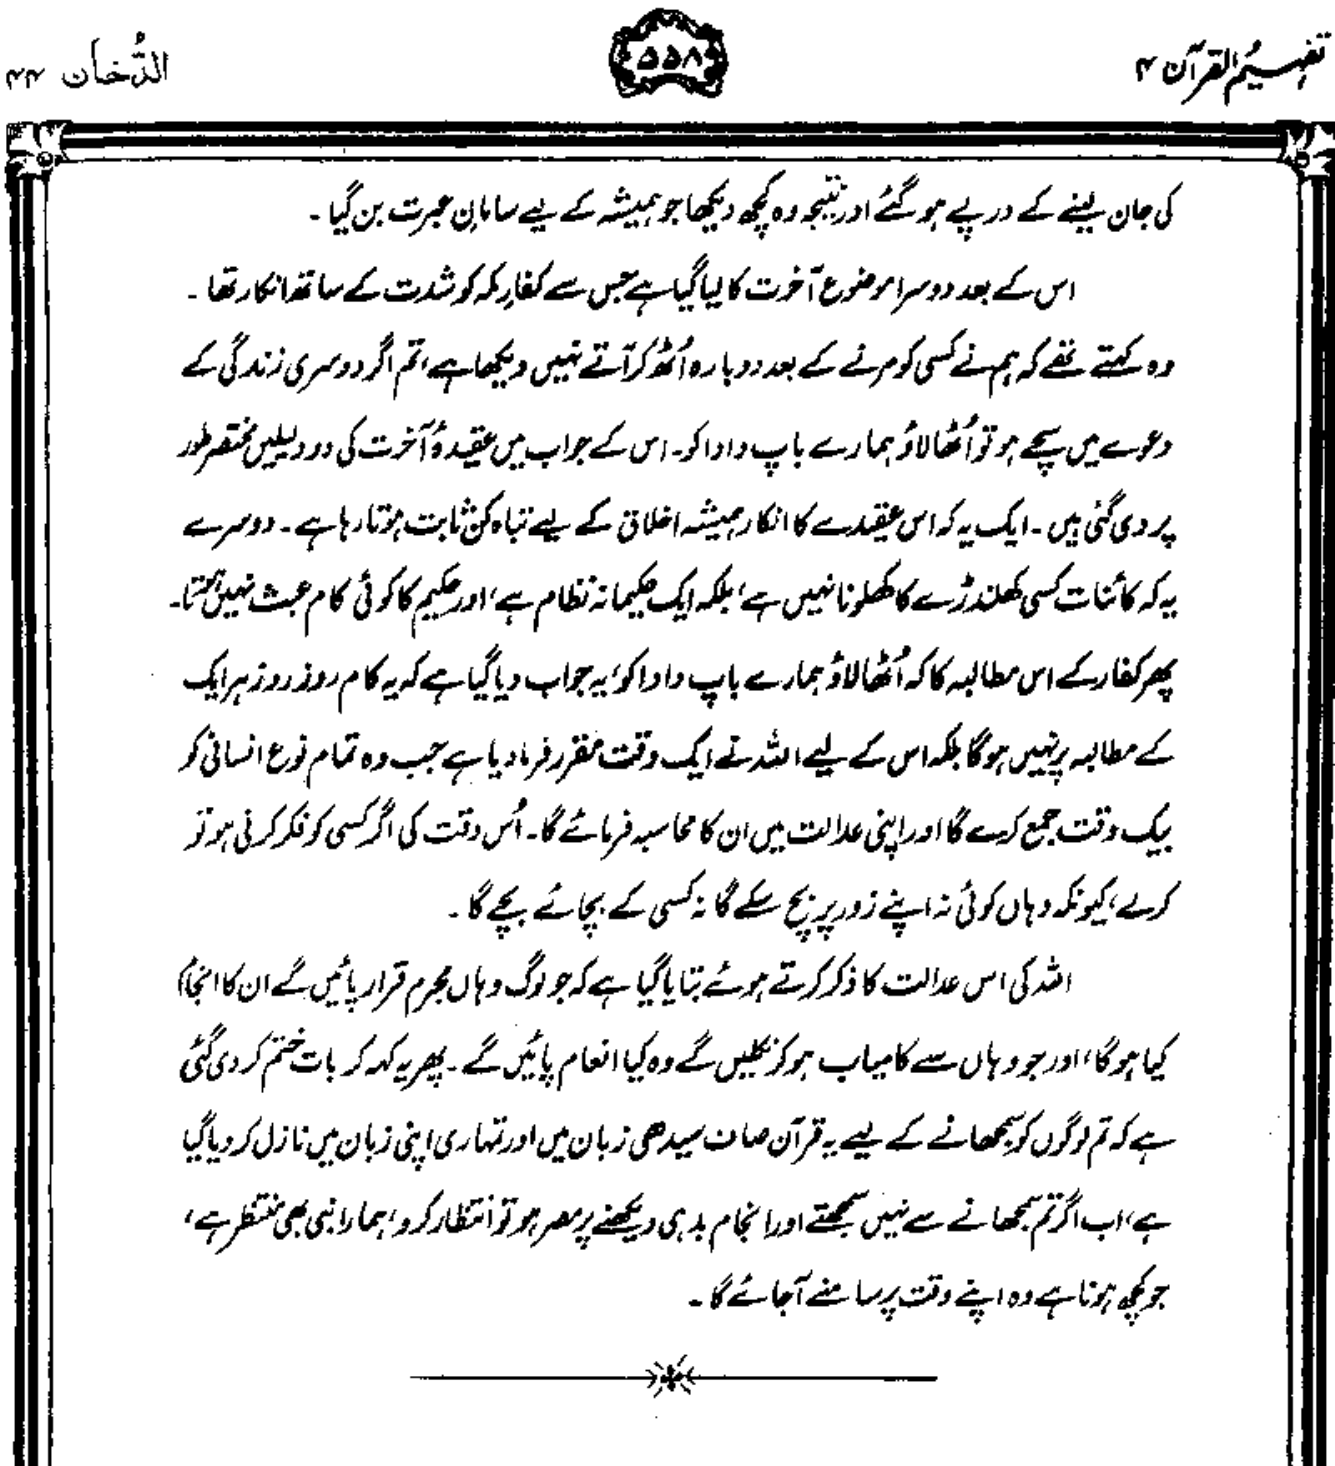 تفہیم القرآن ۴
۵۵۸
الدُّخان ۴۴
کی جان لینے کے درپے ہو گئے اور نتیجہ وہ کچھ دیکھا جو ہمیشہ کے لیے سامانِ عبرت بن گیا ۔
اس کے بعد دوسرا موضوع آخرت کا لیا گیا ہے جس سے کفارِ مکہ کو شدت کے ساتھ انکار تھا ۔
وہ کہتے تھے کہ ہم نے کسی کو مرنے کے بعد دوبارہ اُٹھ کر آتے نہیں دیکھا ہے، تم اگر دوسری زندگی کے
دعوے میں سچے ہو تو اُٹھا لاؤ ہمارے باپ دادا کو۔ اس کے جواب میں عقیدۂ آخرت کی دو دلیلیں مختصر طور
پر دی گئی ہیں ۔ ایک یہ کہ اس عقیدے کا انکار ہمیشہ اخلاق کے لیے تباہ کن ثابت ہوتا رہا ہے ۔ دوسرے
یہ کہ کائنات کسی کھلنڈرے کا کھلونا نہیں ہے، بلکہ ایک حکیمانہ نظام ہے، اور حکیم کا کوئی کام عبث نہیں ہوتا۔
پھر کفار کے اس مطالبہ کا کہ اُٹھا لاؤ ہمارے باپ دادا کو، یہ جواب دیا گیا ہے کہ یہ کام روز روز ہر ایک
کے مطالبہ پر نہیں ہوگا بلکہ اس کے لیے اللہ نے ایک وقت مقرر فرما دیا ہے جب وہ تمام نوع انسانی کو
بیک وقت جمع کرے گا اور اپنی عدالت میں ان کا محاسبہ فرمائے گا۔ اُس وقت کی اگر کسی کو فکر کرنی ہو تو
کرلے، کیونکہ وہاں کوئی نہ اپنے زور پر بچ سکے گا نہ کسی کے بچائے بچے گا ۔
اللہ کی اس عدالت کا ذکر کرتے ہوئے بتایا گیا ہے کہ جو لوگ وہاں مجرم قرار پائیں گے ان کا انجام
کیا ہوگا، اور جو وہاں سے کامیاب ہو کر نکلیں گے وہ کیا انعام پائیں گے ۔ پھر یہ کہہ کر بات ختم کر دی گئی
ہے کہ تم لوگوں کو سمجھانے کے لیے یہ قرآن صاف سیدھی زبان میں اور تمہاری اپنی زبان میں نازل کر دیا گیا
ہے، اب اگر تم سمجھانے سے نہیں سمجھتے اور انجام بد ہی دیکھنے پر مصر ہو تو انتظار کرو، ہمارا نبی بھی منتظر ہے،
جو کچھ ہونا ہے وہ اپنے وقت پر سامنے آجائے گا ۔